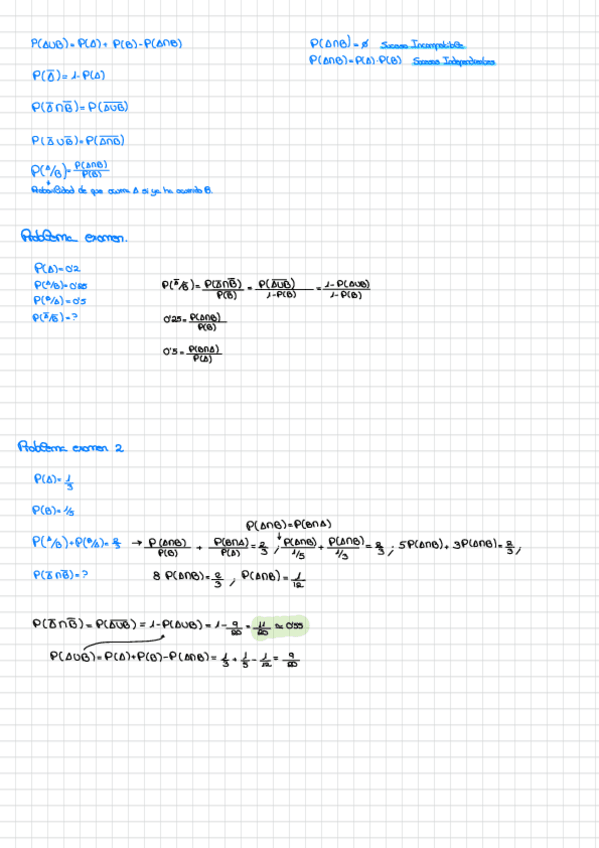 P(A∪B)=P(A)+P(B)-P(A∩B)
P(A∩B)=ø Sucesos Incompatibles
P(A∩B)=P(A)·P(B) Sucesos Independientes
P(A̅)=1-P(A)
P(A̅∩B̅)=P(A̅∪̅B̅)
P(A̅∪B̅)=P(A̅∩̅B̅)
P(A/B)=P(A∩B)/P(B)
Probabilidad de que ocurra A si ya ha ocurrido B.
Problema examen.
P(A)=0'2
P(A/B)=0'25
P(B/A)=0'5
P(A̅/B̅)=?
P(A̅/B̅)=P(A̅∩B̅)/P(B̅)=P(A̅∪̅B̅)/1-P(B)=1-P(A∪B)/1-P(B)
0'25=P(A∩B)/P(B)
0'5=P(B∩A)/P(A)
Problema examen 2
P(A)=1/3
P(B)=1/5
P(A∩B)=P(B∩A)
P(A/B)+P(B/A)=2/3 → P(A∩B)/P(B) + P(B∩A)/P(A)=2/3 ; P(A∩B)/1/5+P(A∩B)/1/3=2/3 ; 5P(A∩B)+3P(A∩B)=2/3 ;
P(A̅∩B̅)=?
8 P(A∩B)=2/3 ; P(A∩B)=1/12
P(A̅∩B̅)=P(A̅∪̅B̅)=1-P(A∪B)=1-9/20=11/20≈0'55
P(A∪B)=P(A)+P(B)-P(A∩B)=1/3+1/5-1/12=9/20